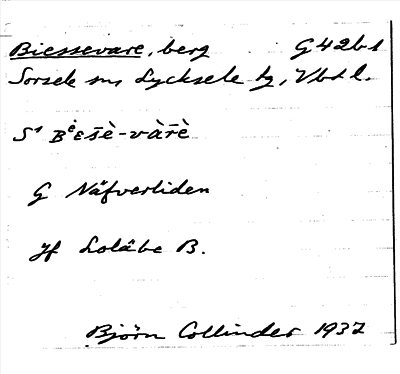 Biessevare, berg G 42 b d
Sorsele sn, Lycksele tg, Vbt l.
S¹ Bᵉ̀ɛs̄è-và̄rè
G Näfverliden
Jf Lolabe B.
Björn Collinder 1937